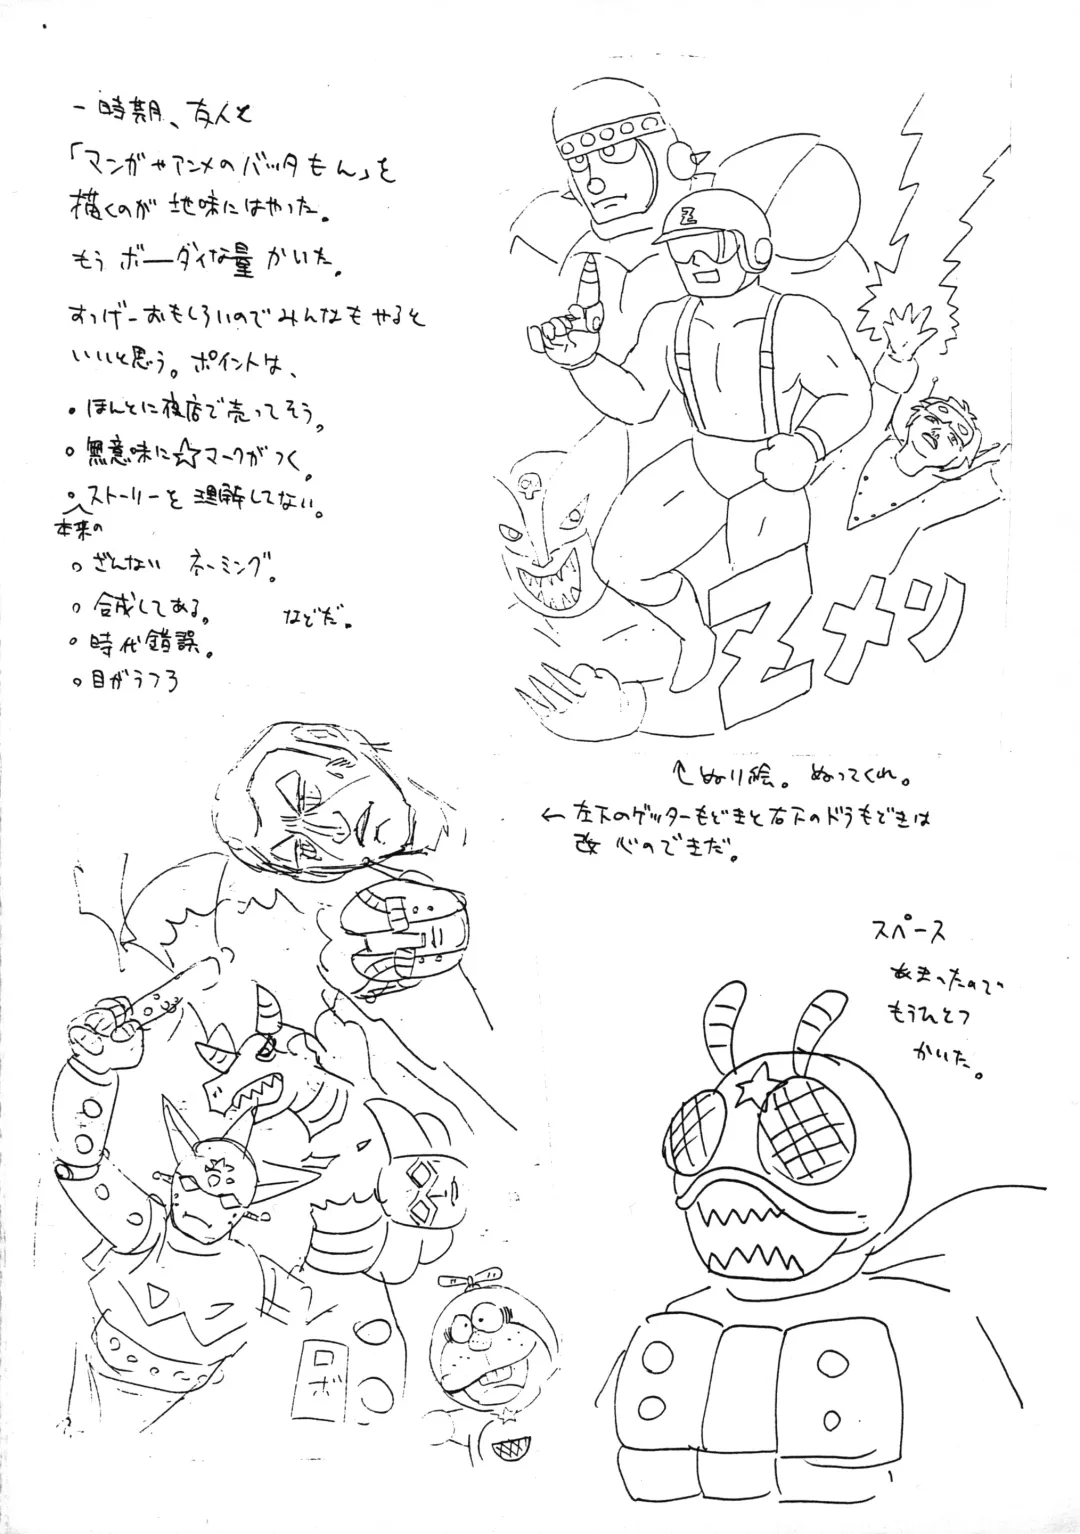 一時期、友人と
「マンガやアニメのバッタもん」を
描くのが地味にはやった。
もうボーダイな量かいた。
すっげーおもしろいのでみんなもやると
いいと思う。ポイントは、
・ほんとに夜店で売ってそう。
・無意味に☆マークがつく。
・本来のストーリーを理解してない。
・ざんない ネーミング。
・合成してある。
・時代錯誤。
・目がうつろ
などだ。
Z
Zメン
↑ぬり絵。ぬってくれ。
←左下のゲッターもどきと右下のドラもどきは
改心のできだ。
スペース
あまったので
もうひとつ
かいた。
ロボ